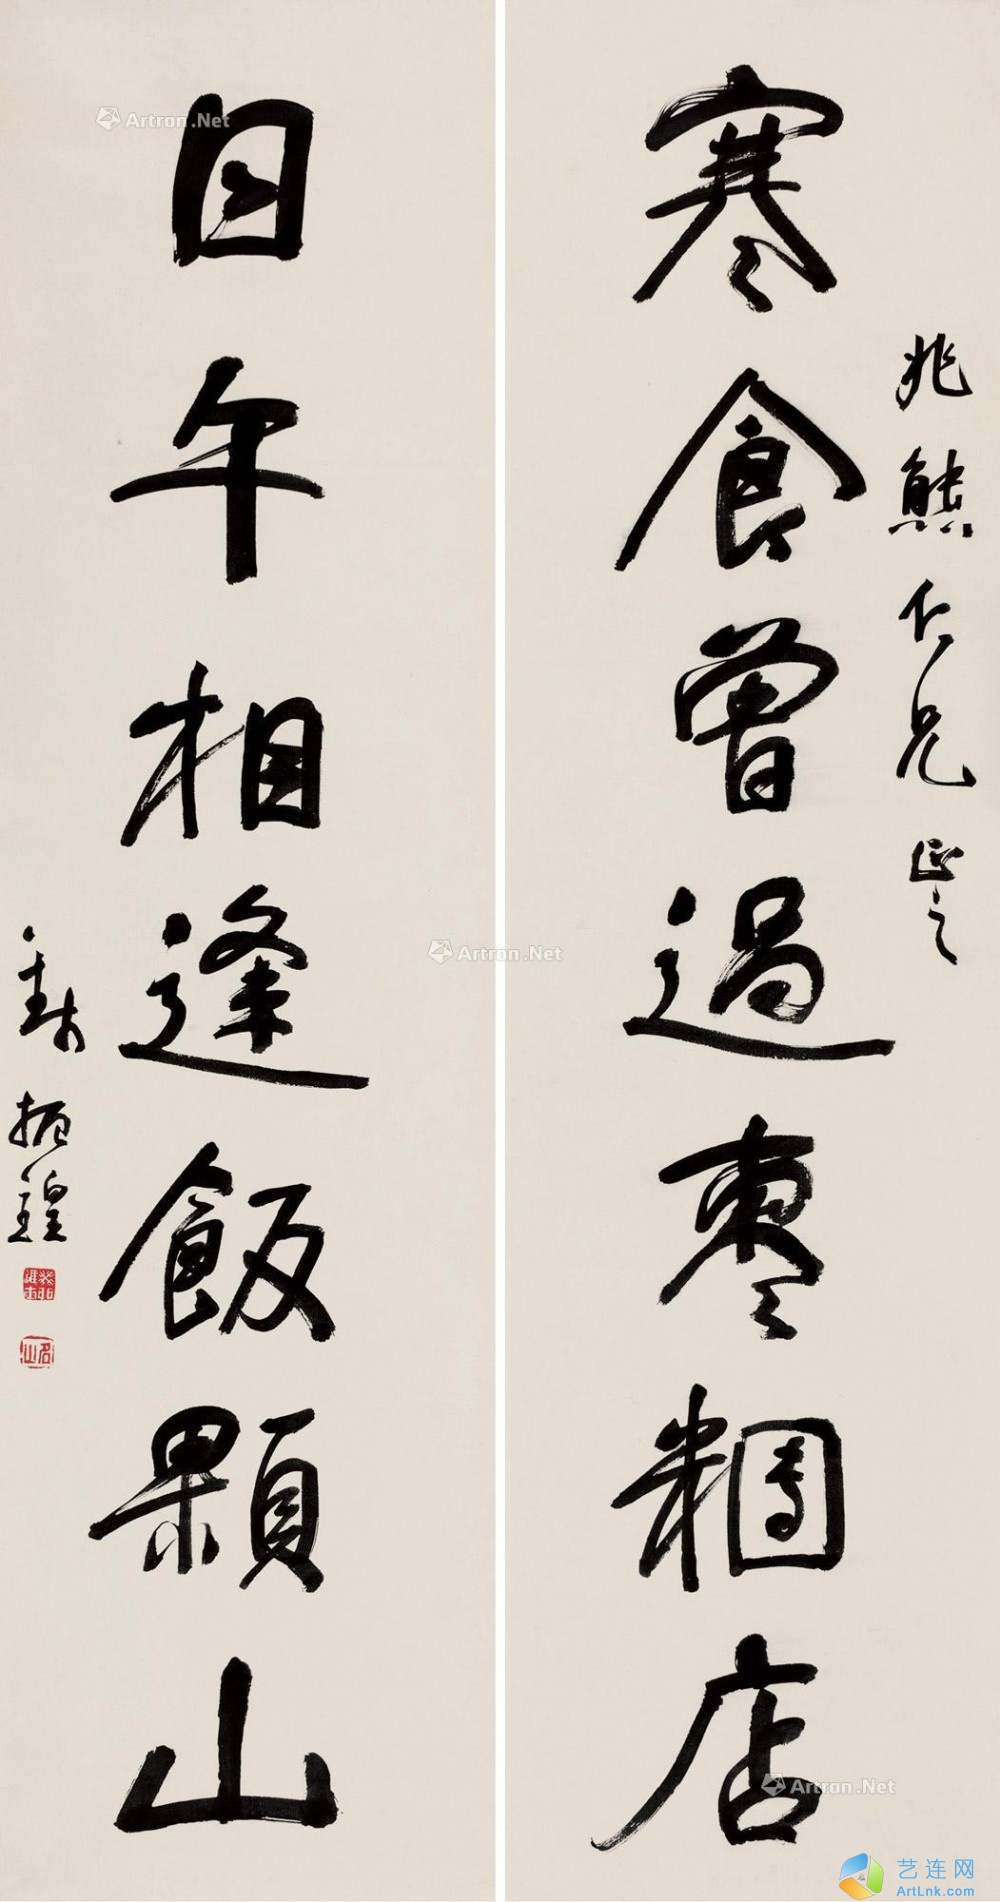 寒食曾過棗糰店
兆熊仁兄正之
日午相逢飯顆山
錢振鍠
名山
Artron.Net
Artron.Net
Artron.Net
艺连网
ArtLnk.com